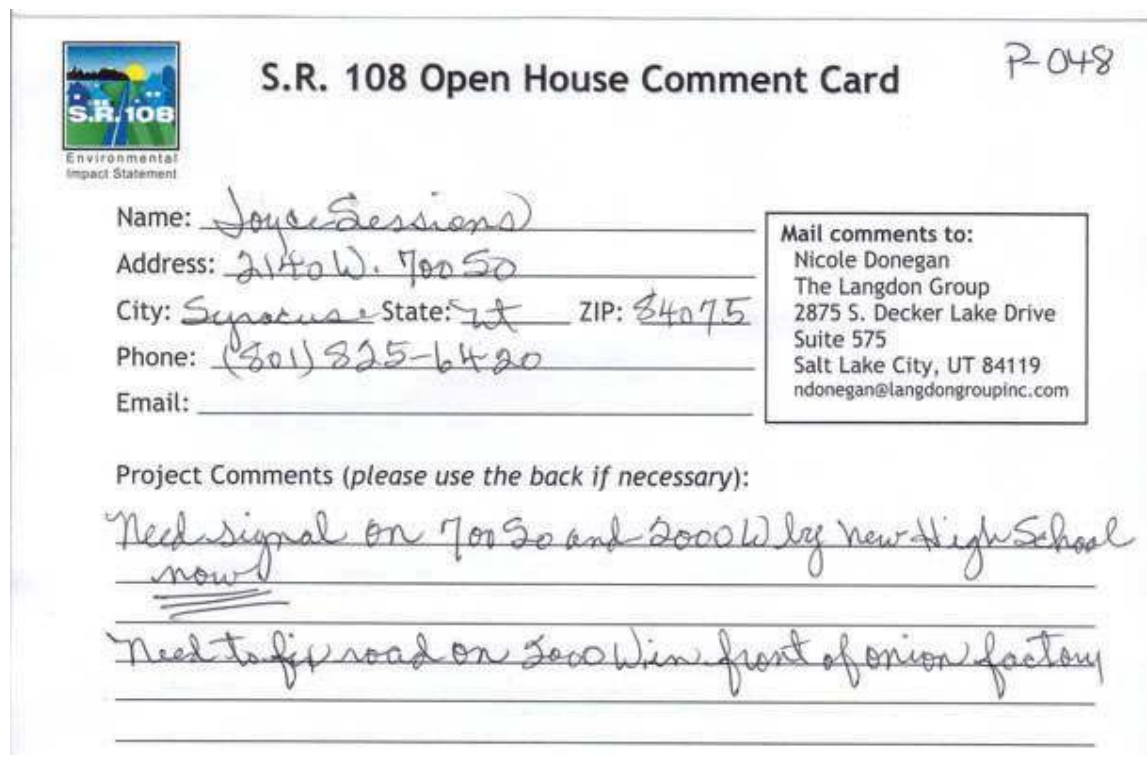 P-048
S.R. 108 Open House Comment Card
S.R. 108
Environmental
Impact Statement
Name: Joyce Sessions
Address: 2140 W. 700 So
City: Syracuse State: Ut ZIP: 84075
Phone: (801) 825-6420
Email:
Mail comments to:
Nicole Donegan
The Langdon Group
2875 S. Decker Lake Drive
Suite 575
Salt Lake City, UT 84119
ndonegan@langdongroupinc.com
Project Comments (please use the back if necessary):
Need signal on 700 So and 2000 W by new High School
now!
Need to fix road on 2000 W in front of onion factory